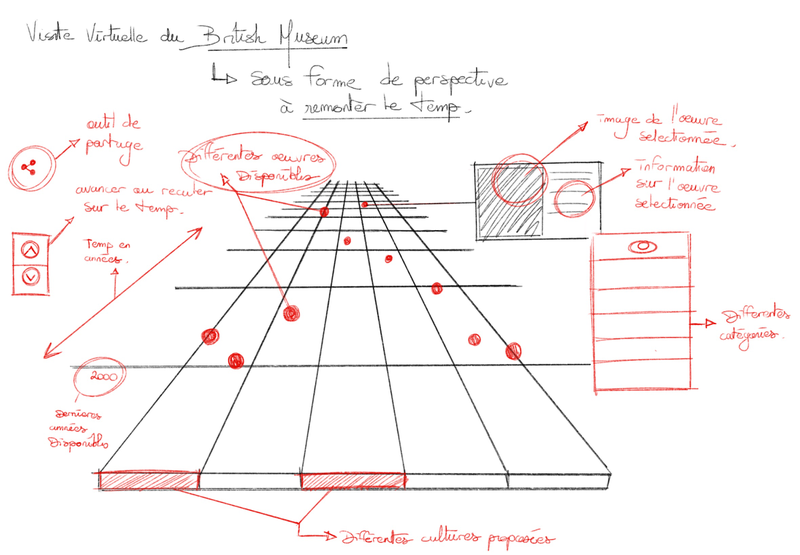 Visite Virtuelle du British Museum
sous forme de perspective
à remonter le temp.
outil de
partage
avancer ou reculer
sur le temp.
Temp en
années.
Différentes oeuvres
Disponibles
image de l'oeuvre
selectionnée.
information
sur l'oeuvre
selectionnée
Différentes
catégories.
2000
Dernieres
années
Disponible
Différentes cultures proposées